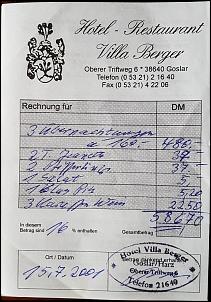 Hotel - Restaurant
Villa Berger
Oberer Triftweg 6 * 38640 Goslar
Telefon (0 53 21) 2 16 40
Fax (0 53 21) 4 22 06
Rechnung für DM
3 Übernachtungen
a 160.- 480,-
2 T.
37,-
1 Salat 5,-
1 5,20
3 Wein 22,50
In diesem
Betrag sind 16 % enthalten
586,70
dankend erhalten
Ort / Datum
15.7.2001
Hotel Villa Berger
Goslar/Harz
Oberer Triftweg
Telefon 21640